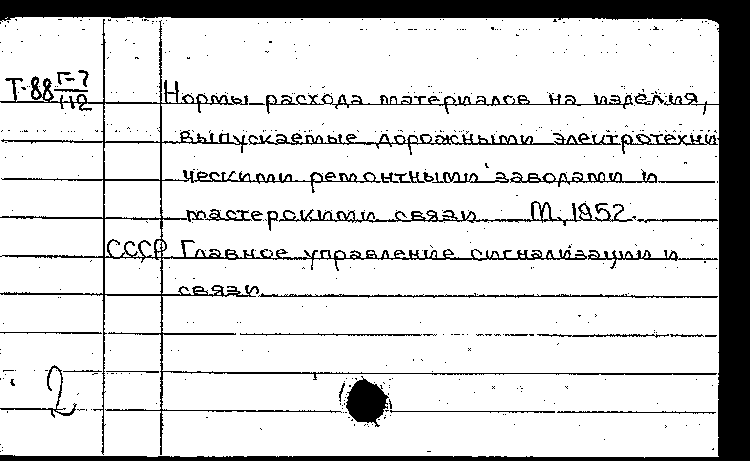 Т-88 Г-7/112 Нормы расхода материалов на изделия,
выпускаемые дорожными электротехни
ческими ремонтными заводами и
мастерскими связи М., 1952.
СССР Главное управление сигнализации и
связи.
2